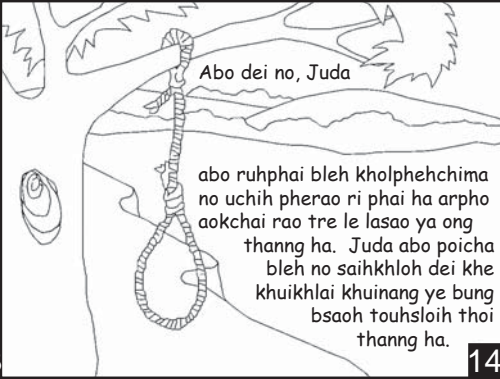 Abo dei no, Juda
abo ruhphai bleh kholphehchima
no uchih pherao ri phai ha arpho
aokchai rao tre le lasao ya ong
thanng ha. Juda abo poicha
bleh no saihkhloh dei khe
khuikhlai khuinang ye bung
bsaoh touhsloih thoi
thanng ha.
14